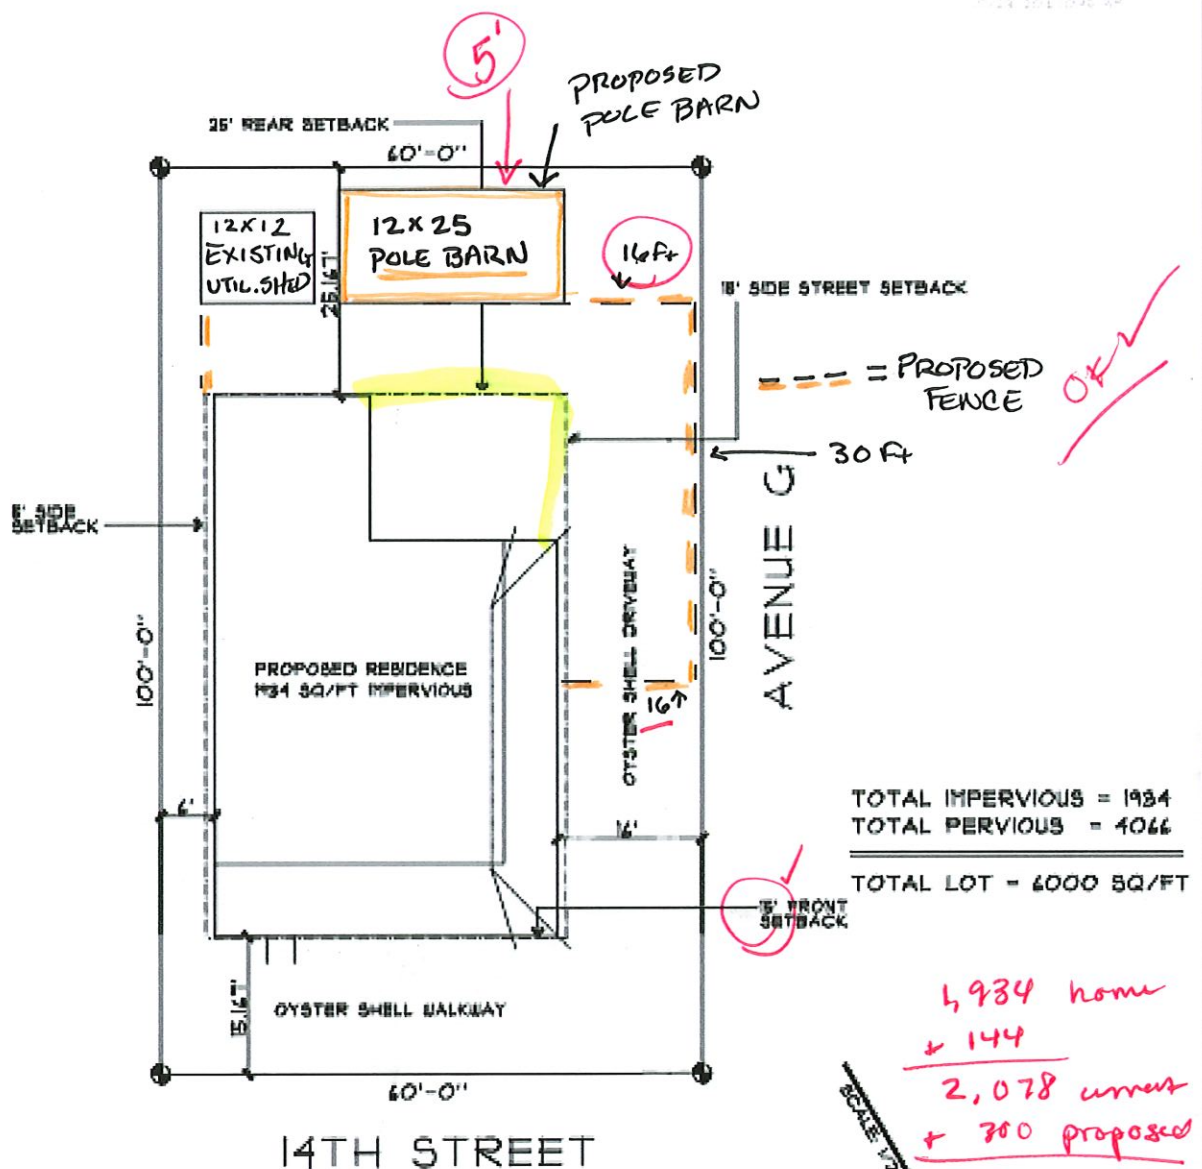 5'
PROPOSED
POLE BARN
25' REAR SETBACK
60'-0"
12X12
EXISTING
UTIL. SHED
25.167'
12 X 25
POLE BARN
16 Ft
SIDE STREET SETBACK
= PROPOSED
FENCE
OK
30 Ft
SIDE
SETBACK
AVENUE G
100'-0"
100'-0"
PROPOSED RESIDENCE
1934 SQ/FT IMPERVIOUS
OYSTER SHELL DRIVEWAY
16
6'
16'
TOTAL IMPERVIOUS = 1934
TOTAL PERVIOUS = 4066
TOTAL LOT = 6000 SQ/FT
15' FRONT
SETBACK
15.167'
OYSTER SHELL WALKWAY
60'-0"
14TH STREET
1,934 home
+ 144
2,078 current
+ 300 proposed
SCALE